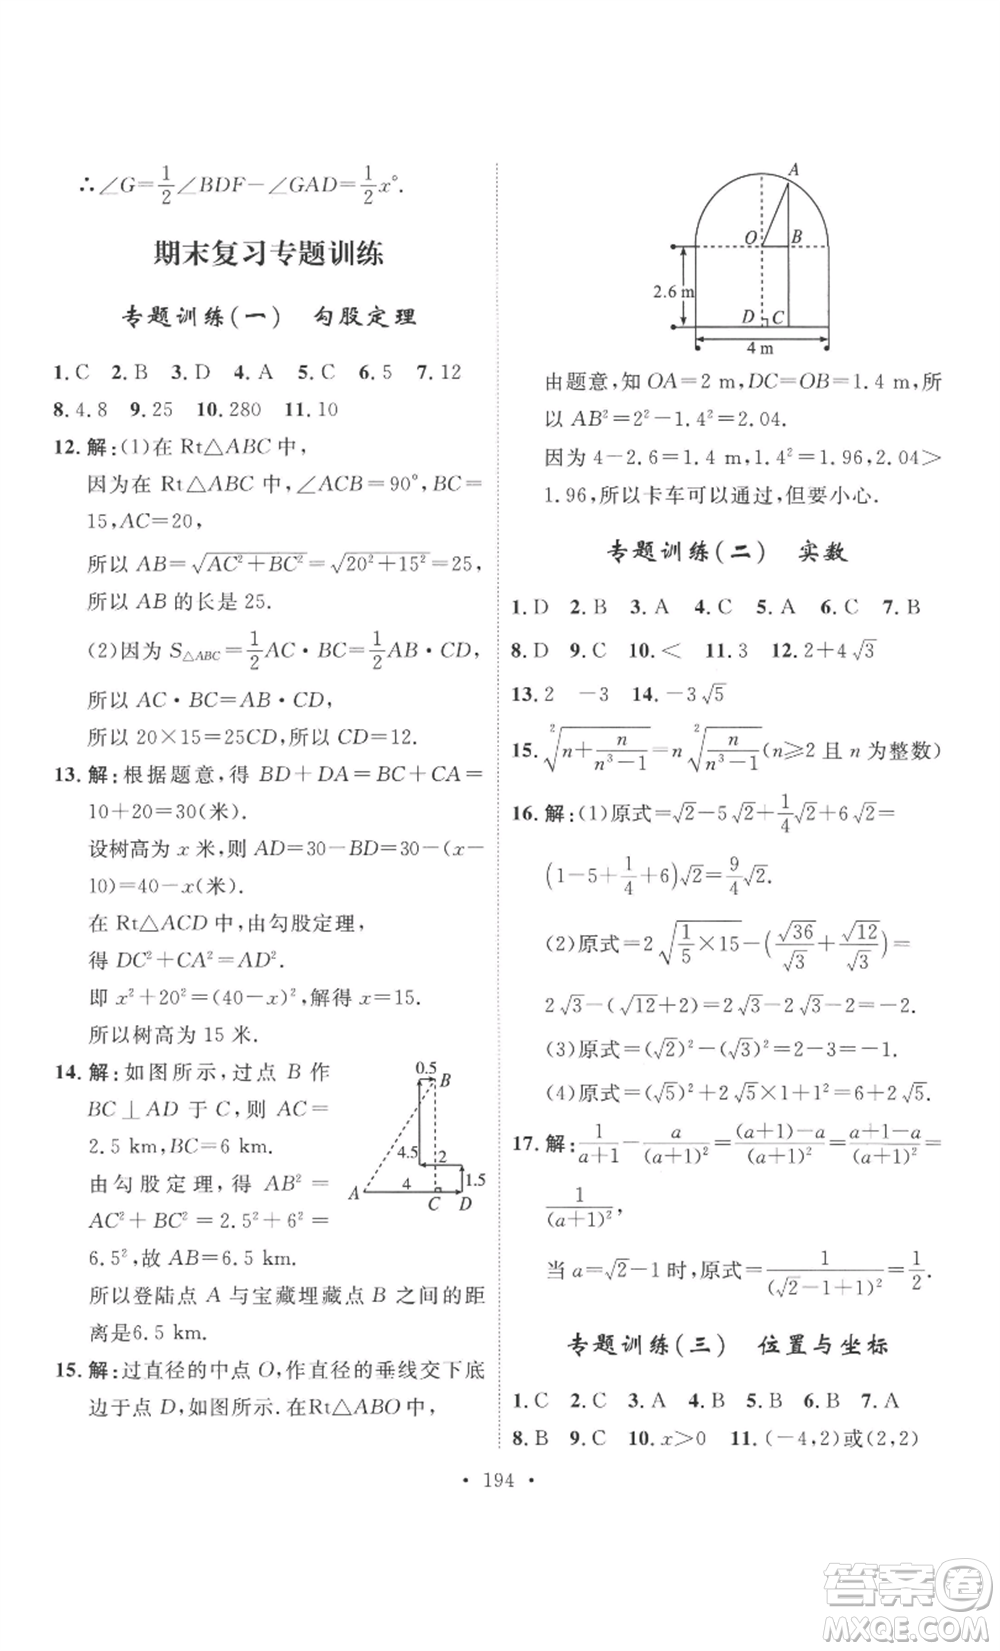 ∴∠G=1/2∠BDF-∠GAD=1/2x°.
期末复习专题训练
专题训练(一)　勾股定理
1. C　2. B　3. D　4. A　5. C　6. 5　7. 12
8. 4.8　9. 25　10. 280　11. 10
12. 解:(1)在 Rt△ABC 中,
因为在 Rt△ABC 中,∠ACB=90°,BC=
15,AC=20,
所以 AB=√(AC²+BC²)=√(20²+15²)=25,
所以 AB 的长是 25.
(2)因为 S△ABC=1/2AC·BC=1/2AB·CD,
所以 AC·BC=AB·CD,
所以 20×15=25CD,所以 CD=12.
13. 解:根据题意,得 BD+DA=BC+CA=
10+20=30(米).
设树高为 x 米,则 AD=30-BD=30-(x-
10)=40-x(米).
在 Rt△ACD 中,由勾股定理,
得 DC²+AC²=AD²,
即 x²+20²=(40-x)²,解得 x=15.
所以树高为 15 米.
14. 解:如图所示,过点 B 作
BC⊥AD 于 C,则 AC=
2.5 km,BC=6 km.
由勾股定理,得 AB²=
AC²+BC²=2.5²+6²=
6.5²,故 AB=6.5 km.
所以登陆点 A 与宝藏埋藏点 B 之间的距
离是6.5 km.
0.5
B
4.5
2
1.5
A
4
C
D
15. 解:过直径的中点 O,作直径的垂线交下底
边于点 D,如图所示.在Rt△ABO 中,
A
O
B
2.6 m
D
C
4 m
由题意,知 OA=2 m,DC=OB=1.4 m,所
以 AB²=2²-1.4²=2.04.
因为 4-2.6=1.4,1.4²=1.96,2.04>
1.96,所以卡车可以通过,但要小心.
专题训练(二)　实数
1. D　2. B　3. A　4. C　5. A　6. C　7. B
8. D　9. C　10. <　11. 3　12. 2+4√3
13. 2　-3　14. -3√5
15. ²√(n+n/(n³-1))=n ²√(n/(n³-1))(n≥2 且 n 为整数)
16. 解:(1)原式=√2-5√2+1/4√2+6√2=
(1-5+1/4+6)√2=9/4√2.
(2)原式=2√(1/5×15)-(√36/√3+√12/√3)=
2√3-(√12+2)=2√3-2√3-2=-2.
(3)原式=(√2)²-(√3)²=2-3=-1.
(4)原式=(√5)²+2√5×1+1²=6+2√5.
17. 解:1/(a+1)-a/(a+1)²=((a+1)-a)/(a+1)²=(a+1-a)/(a+1)²=
1/(a+1)²,
当 a=√2-1时,原式=1/(√2-1+1)²=1/2.
专题训练(三)　位置与坐标
1. C　2. C　3. A　4. A　5. B　6. B　7. A
8. B　9. C　10. x>0　11. (-4,2)或(2,2)
· 194 ·
答案卷
MXQE.COM